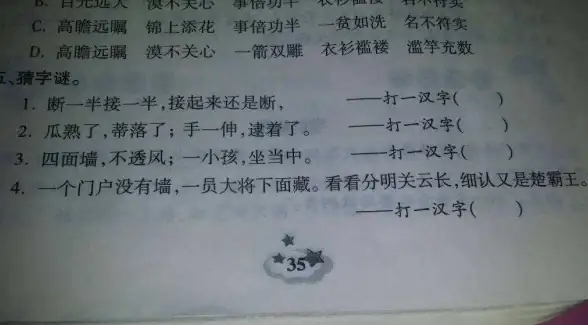 B. 目光远大 漠不关心 事倍功半 衣衫褴褛 名不符实
C. 高瞻远瞩 锦上添花 事倍功半 一贫如洗 名不符实
D. 高瞻远瞩 漠不关心 一箭双雕 衣衫褴褛 滥竽充数
五、猜字谜。
1. 断一半接一半,接起来还是断, ——打一汉字( )
2. 瓜熟了,蒂落了;手一伸,逮着了。 ——打一汉字( )
3. 四面墙,不透风;一小孩,坐当中。 ——打一汉字( )
4. 一个门户没有墙,一员大将下面藏。看看分明关云长,细认又是楚霸王。
——打一汉字( )
35